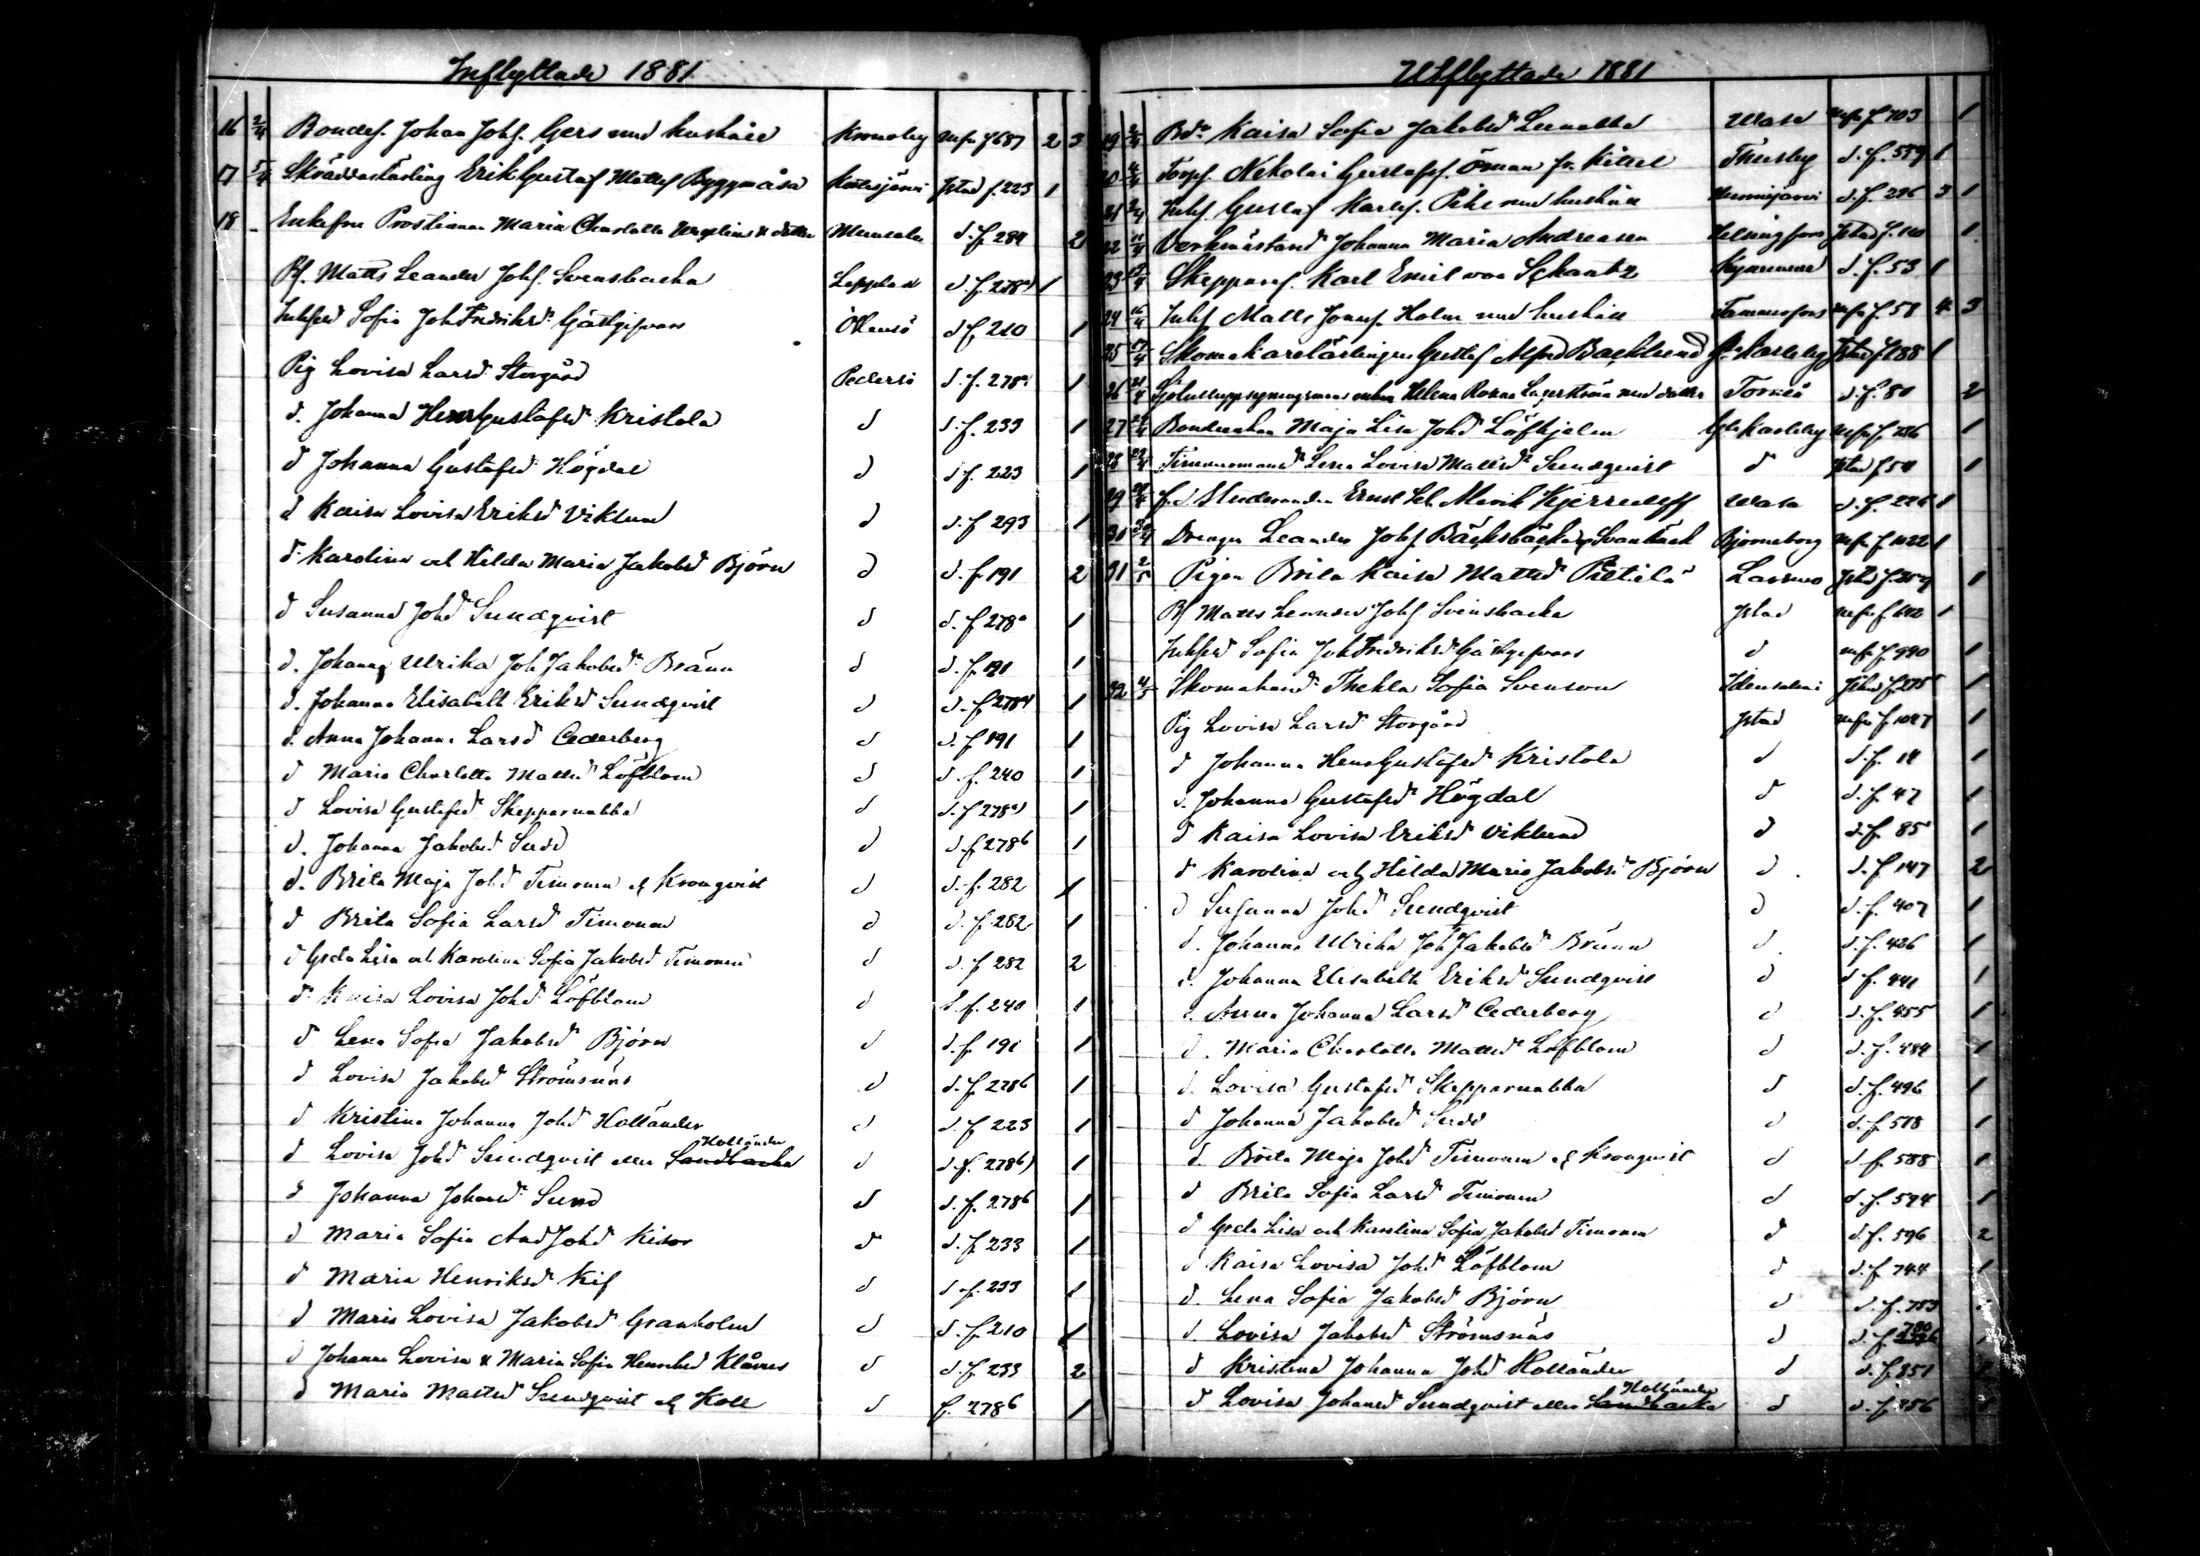 Inflyttade 1881
16 2/4 Bondes. Johan Johs. Gers med hushåll Kronoby nsfn f 687 2 3
17 5/4 Skräddarlärling Erik Gustaf Matts. Byggmäsa f. 223 1
18 - Enkefru Prostinnan Maria Charlotta & dotter d. f. 284 2
Bs. Matts Leander Johs. Svensbacka Lappland d. f. 278 1
Inhysd Sofia Joh Fredriksdr Gästgifvars d f. 210 1
Pig Lovisa Larsdr Storgård Pedersö d. f. 278 1
d. Johanna HenrGustafsdr Kristola d d. f. 233 1
d Johanna Gustafsdr Högdal d d f. 223 1
d Kaisa Lovisa Eriksdr Viklund d d. f 293 1
d Karolina och Hilda Maria Jakobsdr Björn d d. f 191 2
d Susanna Johdr Sundqvist d d. f 278 1
d. Johanna Ulrika Joh Jakobsdr Bränn d d. f 191 1
d. Johanna Elisabeth Eriksdr Sundqvist d d. f 278 1
d. Anna Johanna Larsdr Cederberg d d. f 191 1
d Maria Charlotta Mattsdr Löfblom d d. f. 240 1
d Lovisa Gustafsdr Skepparnabba d d. f 278 1
d. Johanna Jakobsdr Sund d d. f 278b 1
d. Brita Maja Johdr Timonen of Kronqvist d d. f. 282 1
d Brita Sofia Larsdr Timonen d d. f. 282 1
d Greta Lisa och Karolina Sofia Jakobsdr Timonen d d. f 282 2
d Kaisa Lovisa Johdr Löfblom d d. f. 240 1
d Lena Sofia Jakobsdr Björn d d. f. 191 1
d Lovisa Jakobsdr Strömsnäs d d. f. 278b 1
d Kristina Johanna Johdr Holländer d d. f 223 1
d Lovisa Johdr Sundqvist eller Sandbacka Holländer d d. f. 278b 1
d Johanna Johansdr Sund d d. f. 278b 1
d Maria Sofia And Johdr Kisor d d. f. 233 1
d Maria Henriksdr Kis d d. f. 233 1
d Maria Lovisa Jakobsdr Granholm d d. f. 210 1
d Johanna Lovisa & Maria Sofia Henriksdr Klåvus d d. f. 233 2
d Maria Mattsdr Sundqvist of Koll d f. 278b 1
Utflyttade 1881
19 Kaisa Sofia Jakobsdr Wasa nsfn f. 703 1
20 Torps. Nikolai Gustafs. Öman Thusby d. f. 559 1
21 Inhs. Gustaf Karls. med hushåll d. f. 296 3 1
22 Johanna Maria Andreasen Helsingfors f. 110 1
23 Skeppars. Karl Emil von Schantz d. f. 53 1
24 Inhs Matts Holm med hushåll Tammerfors nsfn f. 58 4 3
25 17/4 Skomakarelärlingen Gustaf Alfred Backlund Gkarleby f. 188 1
26 21/4 Helena med dotter Torneå d. f. 80 2
27 Bondeenkan Maja Lisa Johdr Löfhjelm Glekarleby nsfn f. 736 1
28 Timmermansdr Lena Lovisa Mattsdr Sundqvist d f 50 1
29 f. d Studeranden Ernst Kjerrulff Wasa d. f. 226 1
30 Drengen Leander Johs Bäcksbacka Svanbäck Björneborg nsfn f. 1022 1
31 2/5 Pigan Brita Kaisa Mattsdr Pietilä 1
Bs Matts Leander Johs Svensbacka Jstad nsfn f. 1
Inhysd Sofia Joh Fredriksdr Gästgifvars d nsfn f. 990 1
32 4/5 Thekla Sofia Svenson Idensalmi 1
Pig Lovisa Larsdr Storgård Jstad nsfn f. 1047 1
d Johanna HenrGustafsdr Kristola d d. f. 14 1
d. Johanna Gustafsdr Högdal d d. f. 47 1
d Kaisa Lovisa Eriksdr Viklund d d. f. 85 1
d Karolina och Hilda Maria Jakobsdr Björn d d. f 147 2
d Susanna Johdr Sundqvist d d. f. 407 1
d. Johanna Ulrika Joh Jakobsdr Bränn d d. f. 426 1
d. Johanna Elisabeth Eriksdr Sundqvist d d f. 441 1
d. Anna Johanna Larsdr Cederberg d d. f. 455 1
d. Maria Charlotta Mattsdr Löfblom d d. f. 484 1
d. Lovisa Gustafsdr Skepparnabba d d. f. 496 1
d Johanna Jakobsdr Sund d d. f 578 1
d. Brita Maja Johdr Timonen of Kronqvist d d f. 588 1
d Brita Sofia Larsdr Timonen d d. f. 594 1
d Greta Lisa och Karolina Sofia Jakobsdr Timonen d d. f. 596 2
d Kaisa Lovisa Johdr Löfblom d d. f 744 1
d. Lena Sofia Jakobsdr Björn d d. f. 753
d. Lovisa Jakobsdr Strömsnäs d d. f. 780 1
d Kristina Johanna Johdr Holländer d d. f. 851 1
d Lovisa Johansdr Sundqvist eller Sandbacka Holländer d d. f. 856 1